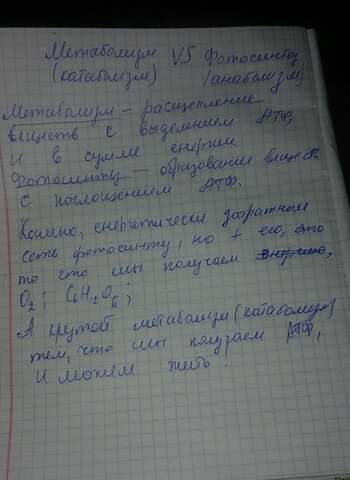 Метаболизм VS Фотосинтез
(катаболизм) (анаболизм)
Метаболизм — расщепление
веществ с выделением АТФ,
и в сумме енергии
Фотосинтез — образование веществ
с поглощением АТФ.
Конечно, енергетически затратным
есть фотосинтез, но + его, это
то что мы получаем
O2; C6H12O6;
А крутой метаболизм (катаболизм)
тем, что мы получаем АТФ,
и можем жить.